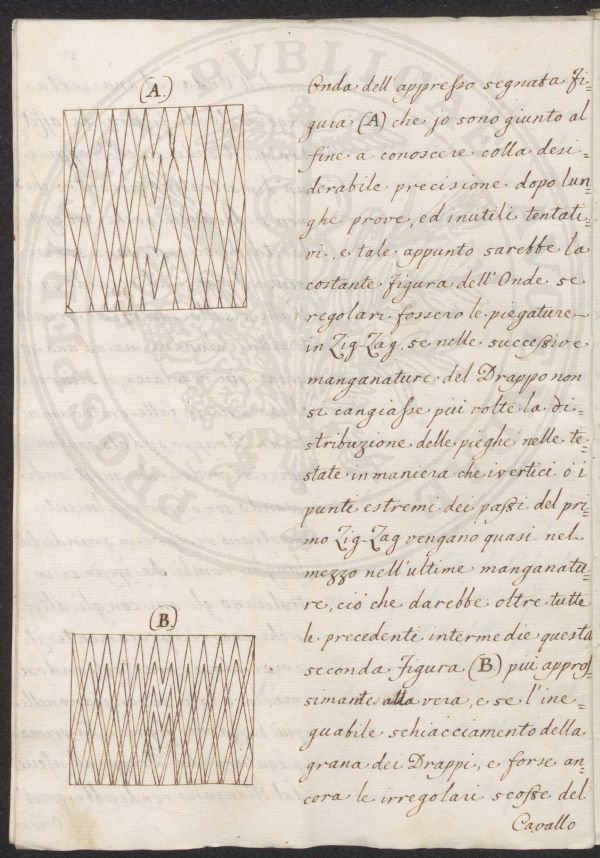 (A.)
Onda dell'appresso segnata Fi=
gura (A) che jo sono giunto al
fine a conoscere colla desi=
derabile precisione dopo lun=
ghe prove, ed inutili tentati=
vi, e tale appunto sarebbe la
costante Figura dell'Onde se
regolari fossero le piegature
in Zig-Zag. se nelle successive
manganature del Drappo non
si cangiasse più volte la di=
stribuzione delle pieghe nelle te=
state in maniera che i vertici o i
punti estremi dei passi del pri=
mo Zig-Zag vengano quasi nel
mezzo nell'ultime manganatu=
re, ciò che darebbe oltre tutte
le precedente intermedie questa
(B.)
seconda Figura (B) più appros=
simante alla vera, e se l'ine=
guabile schiacciamento della
grana dei Drappi, e forse an=
cora le irregolari scosse del
Cavallo